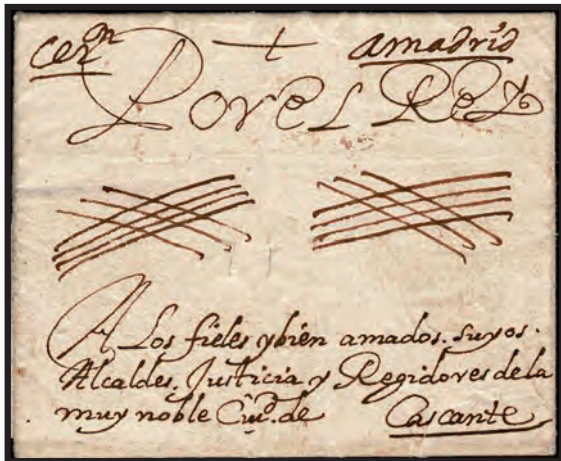 cer^n + amadrid
Por el Rey
A Los fieles y bien amados. suyos.
Alcaldes. Justicia y Regidores de la
muy noble Ciu^d. de Cascante